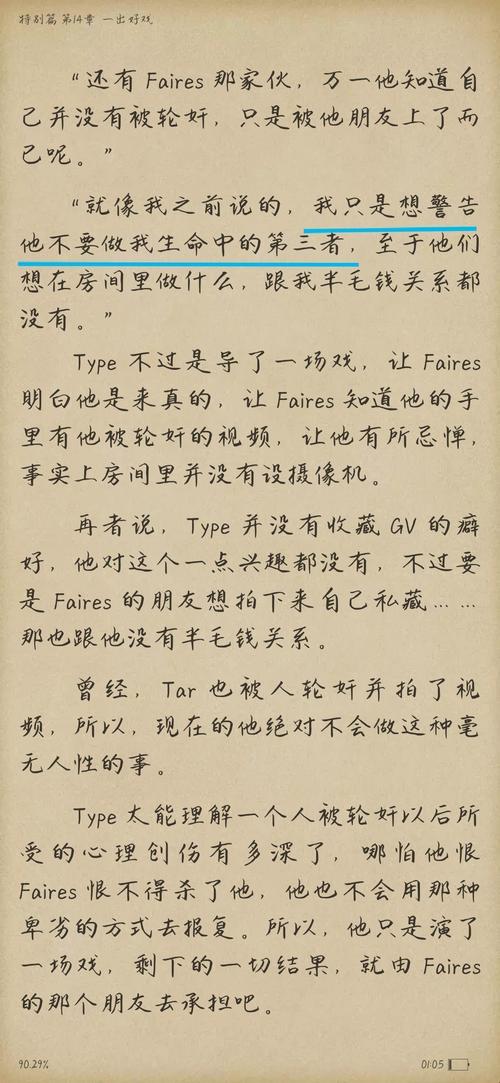 特别篇 第14章 一出好戏
“还有 Faires 那家伙，万一他知道自
己并没有被轮奸，只是被他朋友上了而
已呢。”
“就像我之前说的，我只是想警告
他不要做我生命中的第三者，至于他们
想在房间里做什么，跟我半毛钱关系都
没有。”
Type 不过是导了一场戏，让 Faires
明白他是来真的，让 Faires 知道他的手
里有他被轮奸的视频，让他有所忌惮，
事实上房间里并没有设摄像机。
再者说，Type 并没有收藏 GV 的癖
好，他对这个一点兴趣都没有，不过要
是 Faires 的朋友想拍下来自己私藏……
那也跟他没有半毛钱关系。
曾经，Tar 也被人轮奸并拍了视
频，所以，现在的他绝对不会做这种毫
无人性的事。
Type 太能理解一个人被轮奸以后所
受的心理创伤有多深了，哪怕他恨
Faires 恨不得杀了他，他也不会用那种
卑劣的方式去报复。所以，他只是演了
一场戏，剩下的一切结果，就由 Faires
的那个朋友去承担吧。
90.29%
01:05